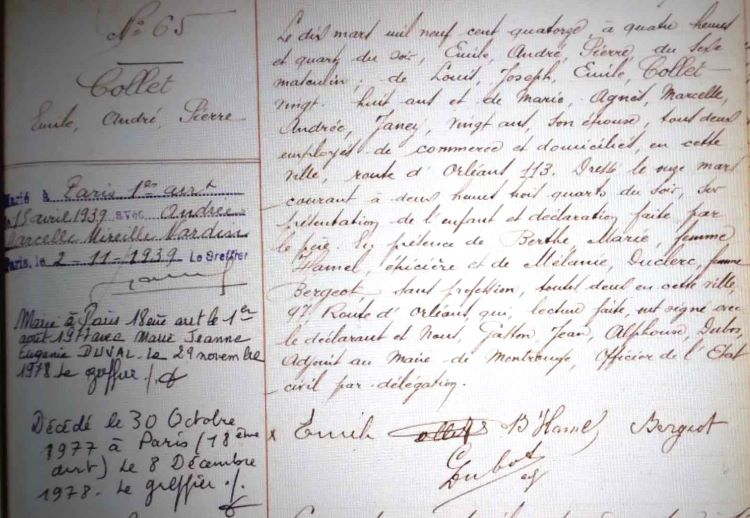 N° 65
Collet
Emile, André, Pierre
Marié à Paris 1er arrt
le 15 avril 1939 avec Andrée
Marcelle Mireille
Paris, le 2-11-1939 Le Greffier
Marié à Paris 18ème arrt le 1er
août 1977 avec Marie Jeanne
Eugenie DUVAL. Le 29 novembre
1978 Le greffier
Décédé le 30 Octobre
1977 à Paris (18ème
arrt) Le 8 Décembre
1978. Le greffier
Le dix mars mil neuf cent quatorze, à quatre heures
et quart du soir, Emile, André, Pierre du sexe
masculin; de Louis, Joseph, Emile, Collet
vingt huit ans et de Marie, Agnès, Marcelle,
Andrée, Janey, vingt ans, son épouse, tous deux
employés de commerce et domiciliés, en cette
ville, route d'Orléans 113. Dressé le onze mars
courant à deux heures trois quarts du soir, sur
présentation de l'enfant et déclaration faite par
le père. En présence de Berthe, Marie, femme
Hamel, épicière et de Mélanie, Duclerc, femme
Bergeot, sans profession, toutes deux en cette ville,
97 Route d'Orléans, qui, lecture faite, ont signé avec
le déclarant et Nous, Gaston Jean, Alphonse, Dubos,
Adjoint au Maire de Montrouge, Officier de l'Etat
civil par délégation.
Emile Collet B Hamel Bergeot
Dubos